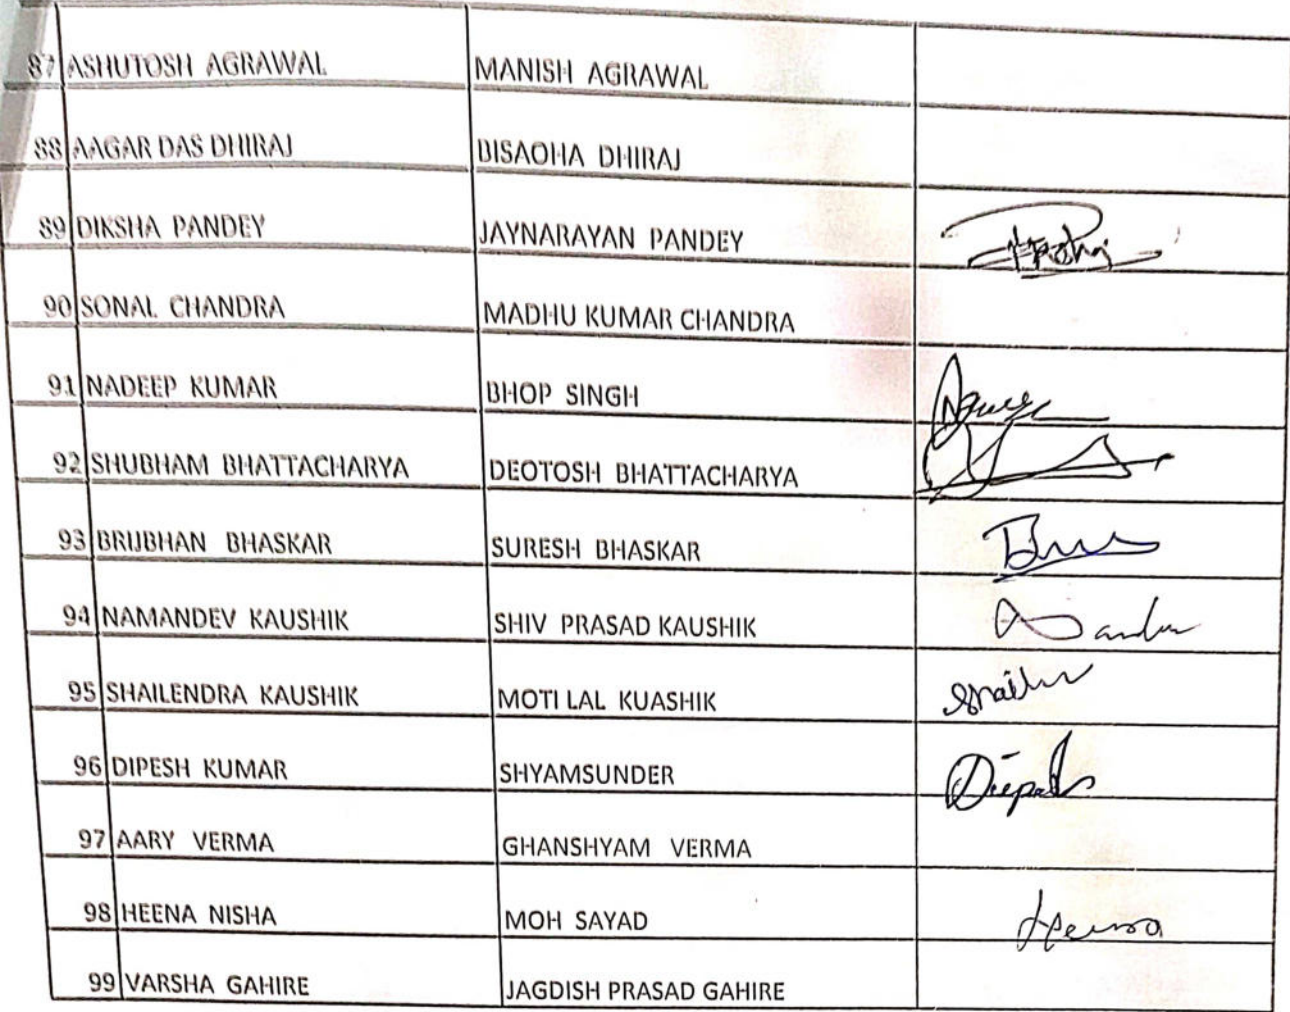 87 ASHUTOSH AGRAWAL MANISH AGRAWAL
88 AAGAR DAS DHIRAJ BISAOHA DHIRAJ
89 DIKSHA PANDEY JAYNARAYAN PANDEY
90 SONAL CHANDRA MADHU KUMAR CHANDRA
91 NADEEP KUMAR BHOP SINGH
92 SHUBHAM BHATTACHARYA DEOTOSH BHATTACHARYA
93 BRIJBHAN BHASKAR SURESH BHASKAR
94 NAMANDEV KAUSHIK SHIV PRASAD KAUSHIK
95 SHAILENDRA KAUSHIK MOTI LAL KUASHIK
96 DIPESH KUMAR SHYAMSUNDER
97 AARY VERMA GHANSHYAM VERMA
98 HEENA NISHA MOH SAYAD Heena
99 VARSHA GAHIRE JAGDISH PRASAD GAHIRE